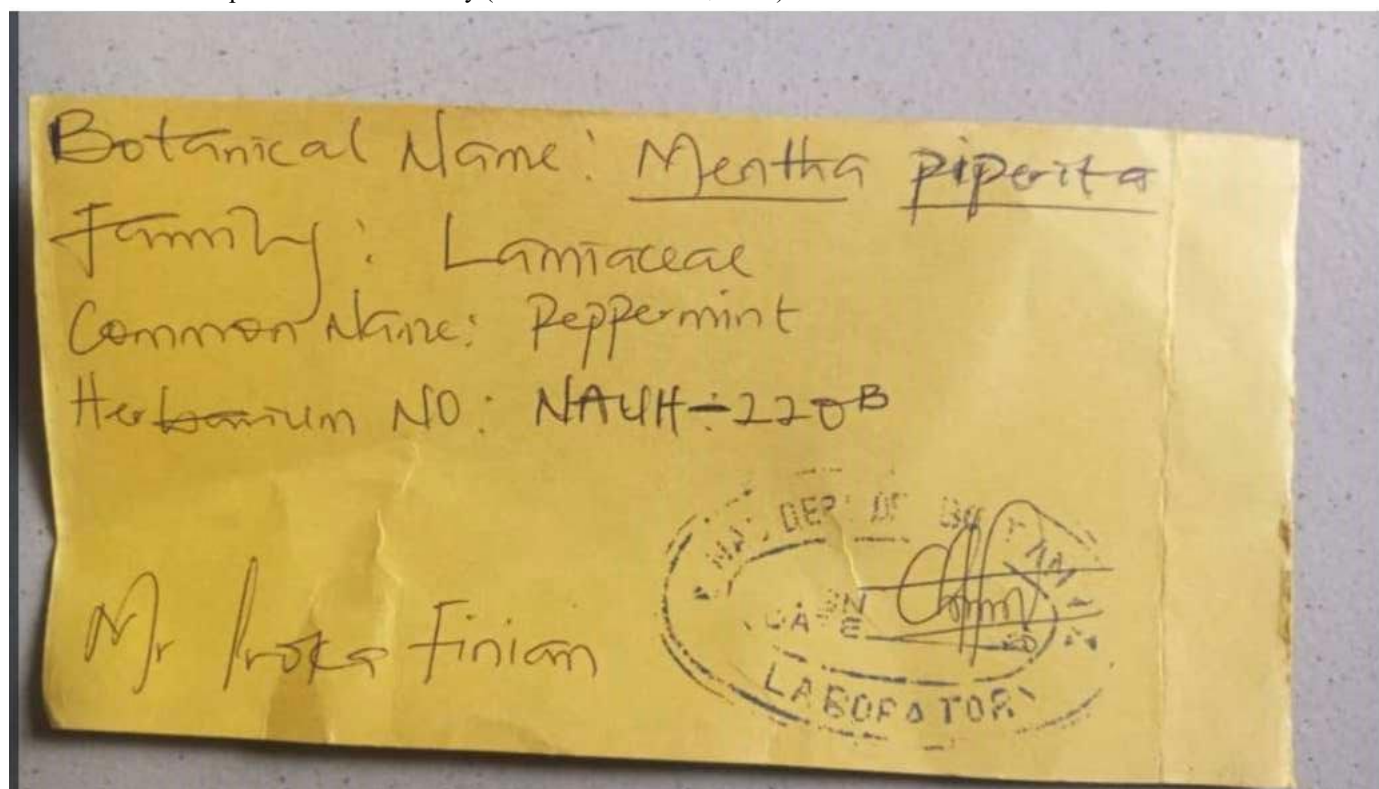 Botanical Name: Mentha piperita
Family: Lamiaceae
Common Name: Peppermint
Herbarium NO: NAUH-220B
Mr Iroka Finian
DEPT OF
DATE
LABORATORY